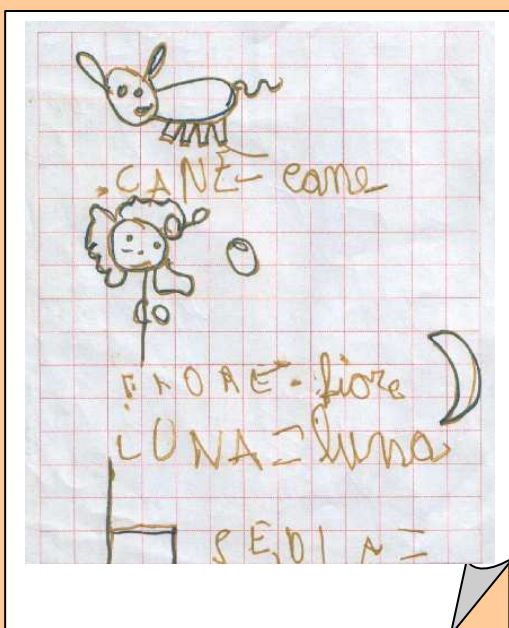 CANE - cane
FIORE - fiore
LUNA = luna
SEDIA =